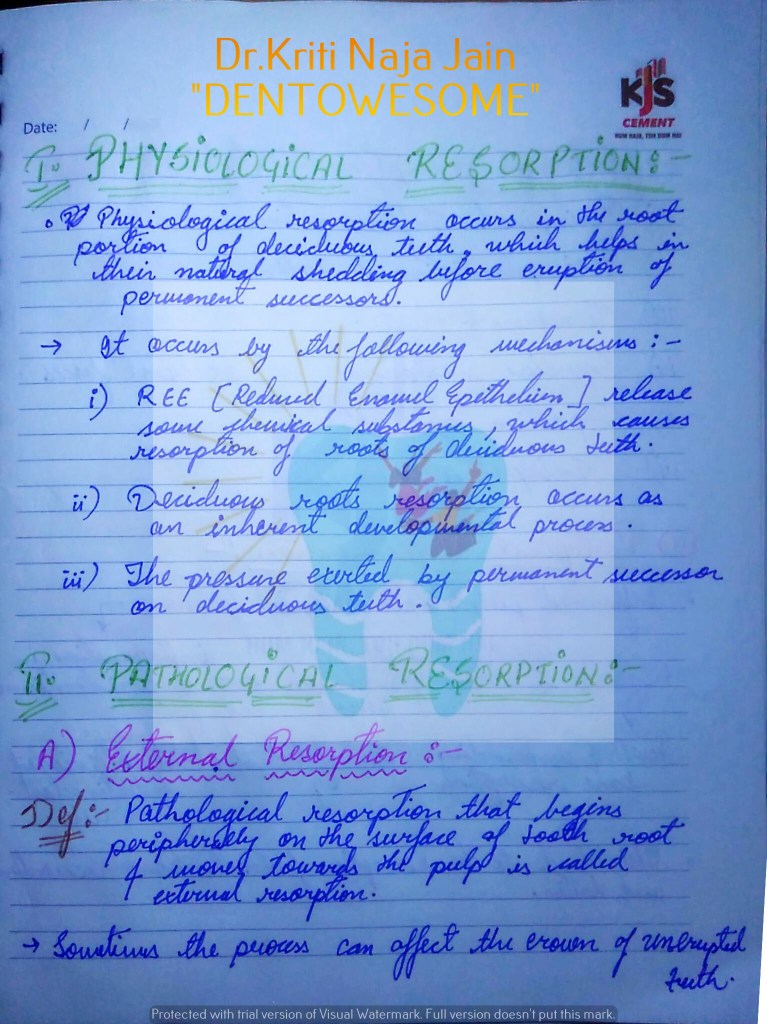 Dr.Kriti Naja Jain
"DENTOWESOME"
KJS
CEMENT
Date: / /
I. PHYSIOLOGICAL RESORPTION:-
Physiological resorption occurs in the root
portion of deciduous teeth, which helps in
their natural shedding before eruption of
permanent successors.
→ It occurs by the following mechanisms:-
i) REE [Reduced Enamel Epethelium] release
some chemical substances, which causes
resorption of roots of deciduous teeth.
ii) Deciduous roots resorption occurs as
an inherent developmental process.
iii) The pressure exerted by permanent successor
on deciduous teeth.
II. PATHOLOGICAL RESORPTION:-
A) External Resorption:-
Def:- Pathological resorption that begins
peripherally on the surface of tooth root
& moves towards the pulp is called
external resorption.
→ Sometimes the process can affect the crown of unerupted
teeth.
Protected with trial version of Visual Watermark. Full version doesn't put this mark.